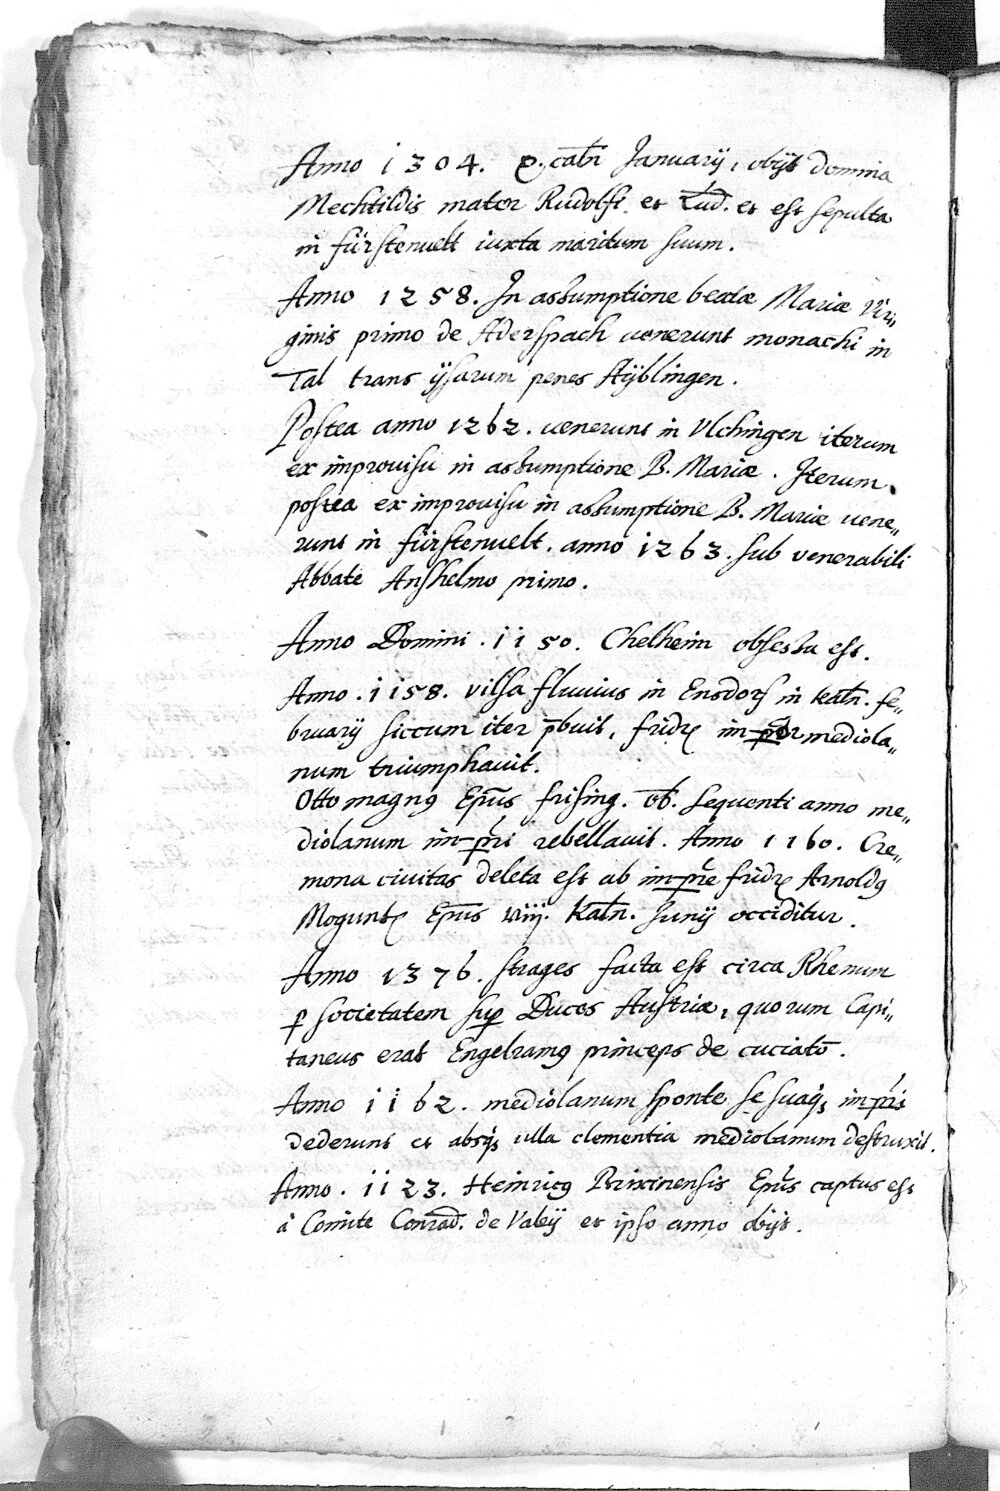 Anno 1304. X. caln̄ Januarij, obijt Domina
Mechtildis mater Rudolfi. et Lud. et est sepulta
in fürstenuelt iuxta maritum suum.
Anno 1258. In assumptione beatæ Mariæ Vir„
ginis primo de Aderspach venerunt monachi in
Tal trans ÿsarum penes Aÿblingen.
Postea anno 1262. venerunt in Vlchingen iterum
ex improuisu in assumptione B. Mariæ. Iterum
postea ex improuisu in assumptione B. Mariæ vene„
runt in fürstenuelt. anno 1263. sub venerabili
Abbate Anshelmo primo.
Anno Domini. 1150. Chelheim obsessa est.
Anno. 1158. vilsa fluuius in Ensdorf in kaln̄. fe„
bruarij siccum iter p̄buit, fridꝶ imꝑor mediola„
num triumphauit.
Otto magnꝰ Ep̄us frising. ob. sequenti anno me„
diolanum imꝑri rebellauit. Anno 1160. Cre„
mona ciuitas deleta est ab imꝑre fridꝶ Arnoldꝰ
Moguntꝶ Ep̄us viiij. Kaln̄. Junij occiditur.
Anno 1376. strages facta est circa Rhenum
ꝑ societatem suꝑ Duces Austriæ, quorum Capi„
taneus erat Engelramꝰ princeps de cuciato.
Anno 1162. mediolanum sponte se suaqꝫ imꝑris
dederunt et absqꝫ ulla clementia mediolanum destruxit.
Anno. 1123. Heinricꝰ Brixinensis Ep̄us captus est
à Comite Conrad. de Valeÿ et ipso anno obijt.